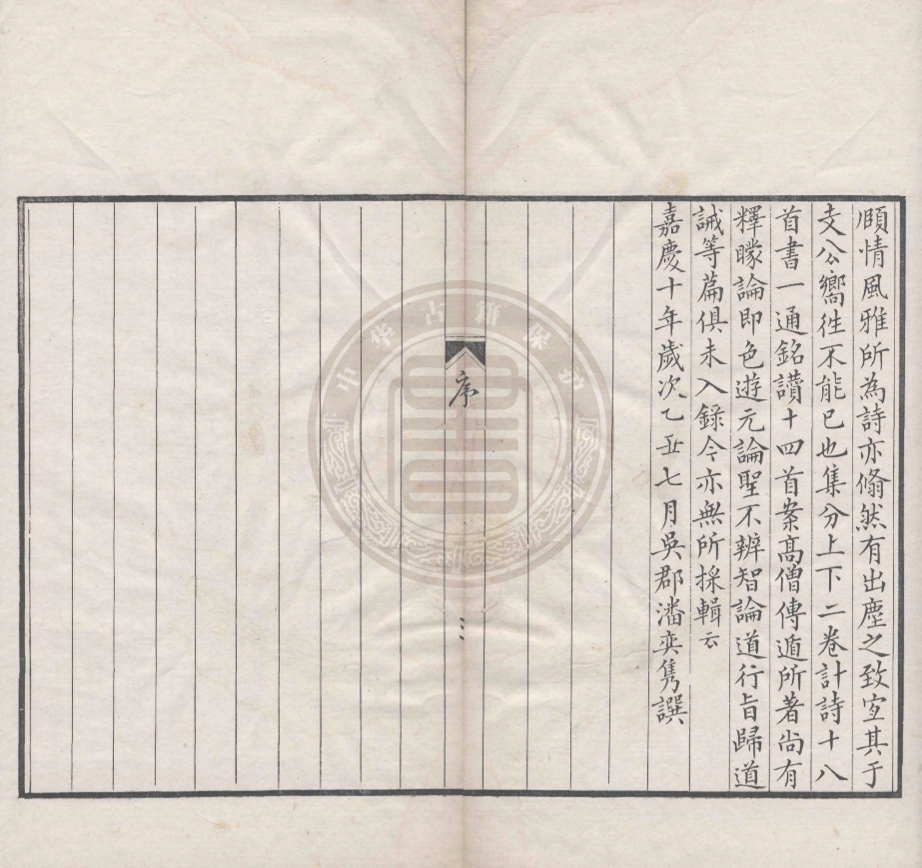 頤情風雅所為詩亦翛然有出塵之致宐其于
支公嚮徃不能已也集分上下二卷計詩十八
首書一通銘讚十四首案高僧傳遁所著尚有
釋矇論即色遊元論聖不辨智論道行旨歸道
誡等篇俱未入錄今亦無所採輯云
嘉慶十年歲次乙丑七月吳郡潘奕雋譔
序
三
中华古籍保护